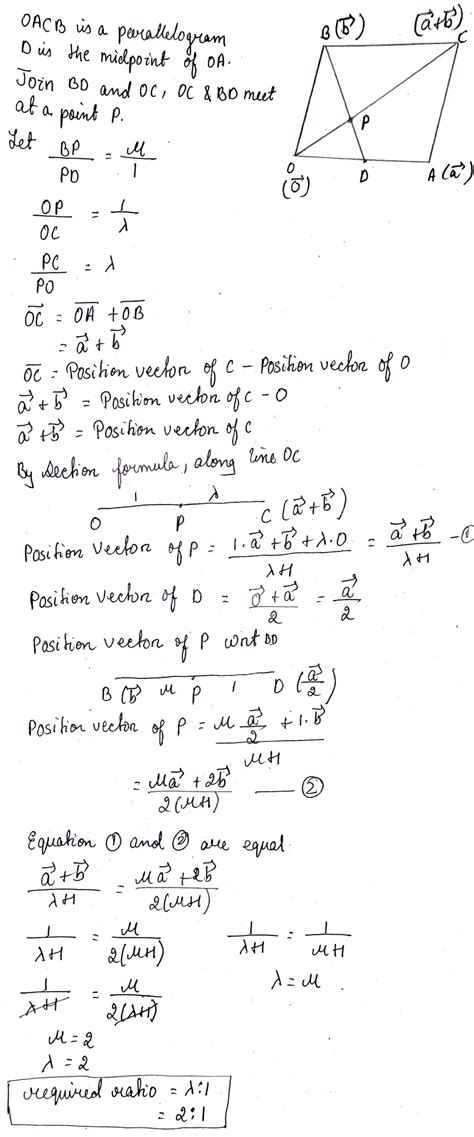 OACB is a parallelogram
D is the midpoint of OA.
Join BD and OC, OC & BD meet
at a point P.
B(b⃗) (a⃗+b⃗) C
P
O (0⃗) D A(a⃗)
Let BP/PD = μ/1
OP/OC = 1/λ
PC/PO = λ
OC⃗ = OA⃗ + OB⃗
= a⃗ + b⃗
OC⃗ = Position vector of C - Position vector of O
a⃗ + b⃗ = Position vector of C - 0
a⃗ + b⃗ = Position vector of C
By section formula, along line OC
1 λ
O P C (a⃗+b⃗)
Position vector of P = (1.a⃗+b⃗+λ.0)/(λ+1) = (a⃗+b⃗)/(λ+1) - ①
Position vector of D = (0⃗+a⃗)/2 = a⃗/2
Position vector of P wrt BD
B (b⃗ μ P 1 D (a⃗/2)
Position vector of P = (μ a⃗/2 + 1.b⃗)/(μ+1)
= (μa⃗ + 2b⃗)/(2(μ+1)) — ②
Equation ① and ② are equal.
(a⃗+b⃗)/(λ+1) = (μa⃗+2b⃗)/(2(μ+1))
1/(λ+1) = μ/(2(μ+1)) 1/(λ+1) = 1/(μ+1)
λ = μ
1/(λ+1) = μ/(2(λ+1))
μ = 2
λ = 2
required ratio = λ:1
= 2:1